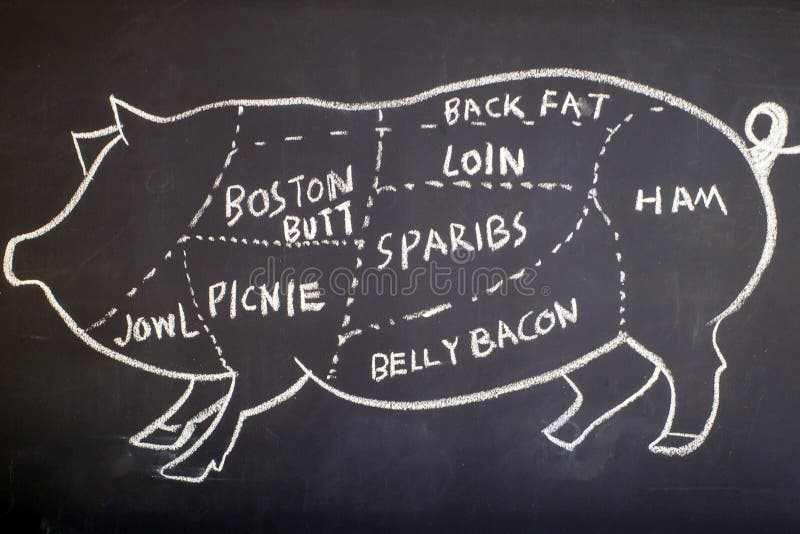 BACK FAT
LOIN
BOSTON
BUTT
HAM
SPARIBS
PICNIE
JOWL
BELLY BACON
dreamstime